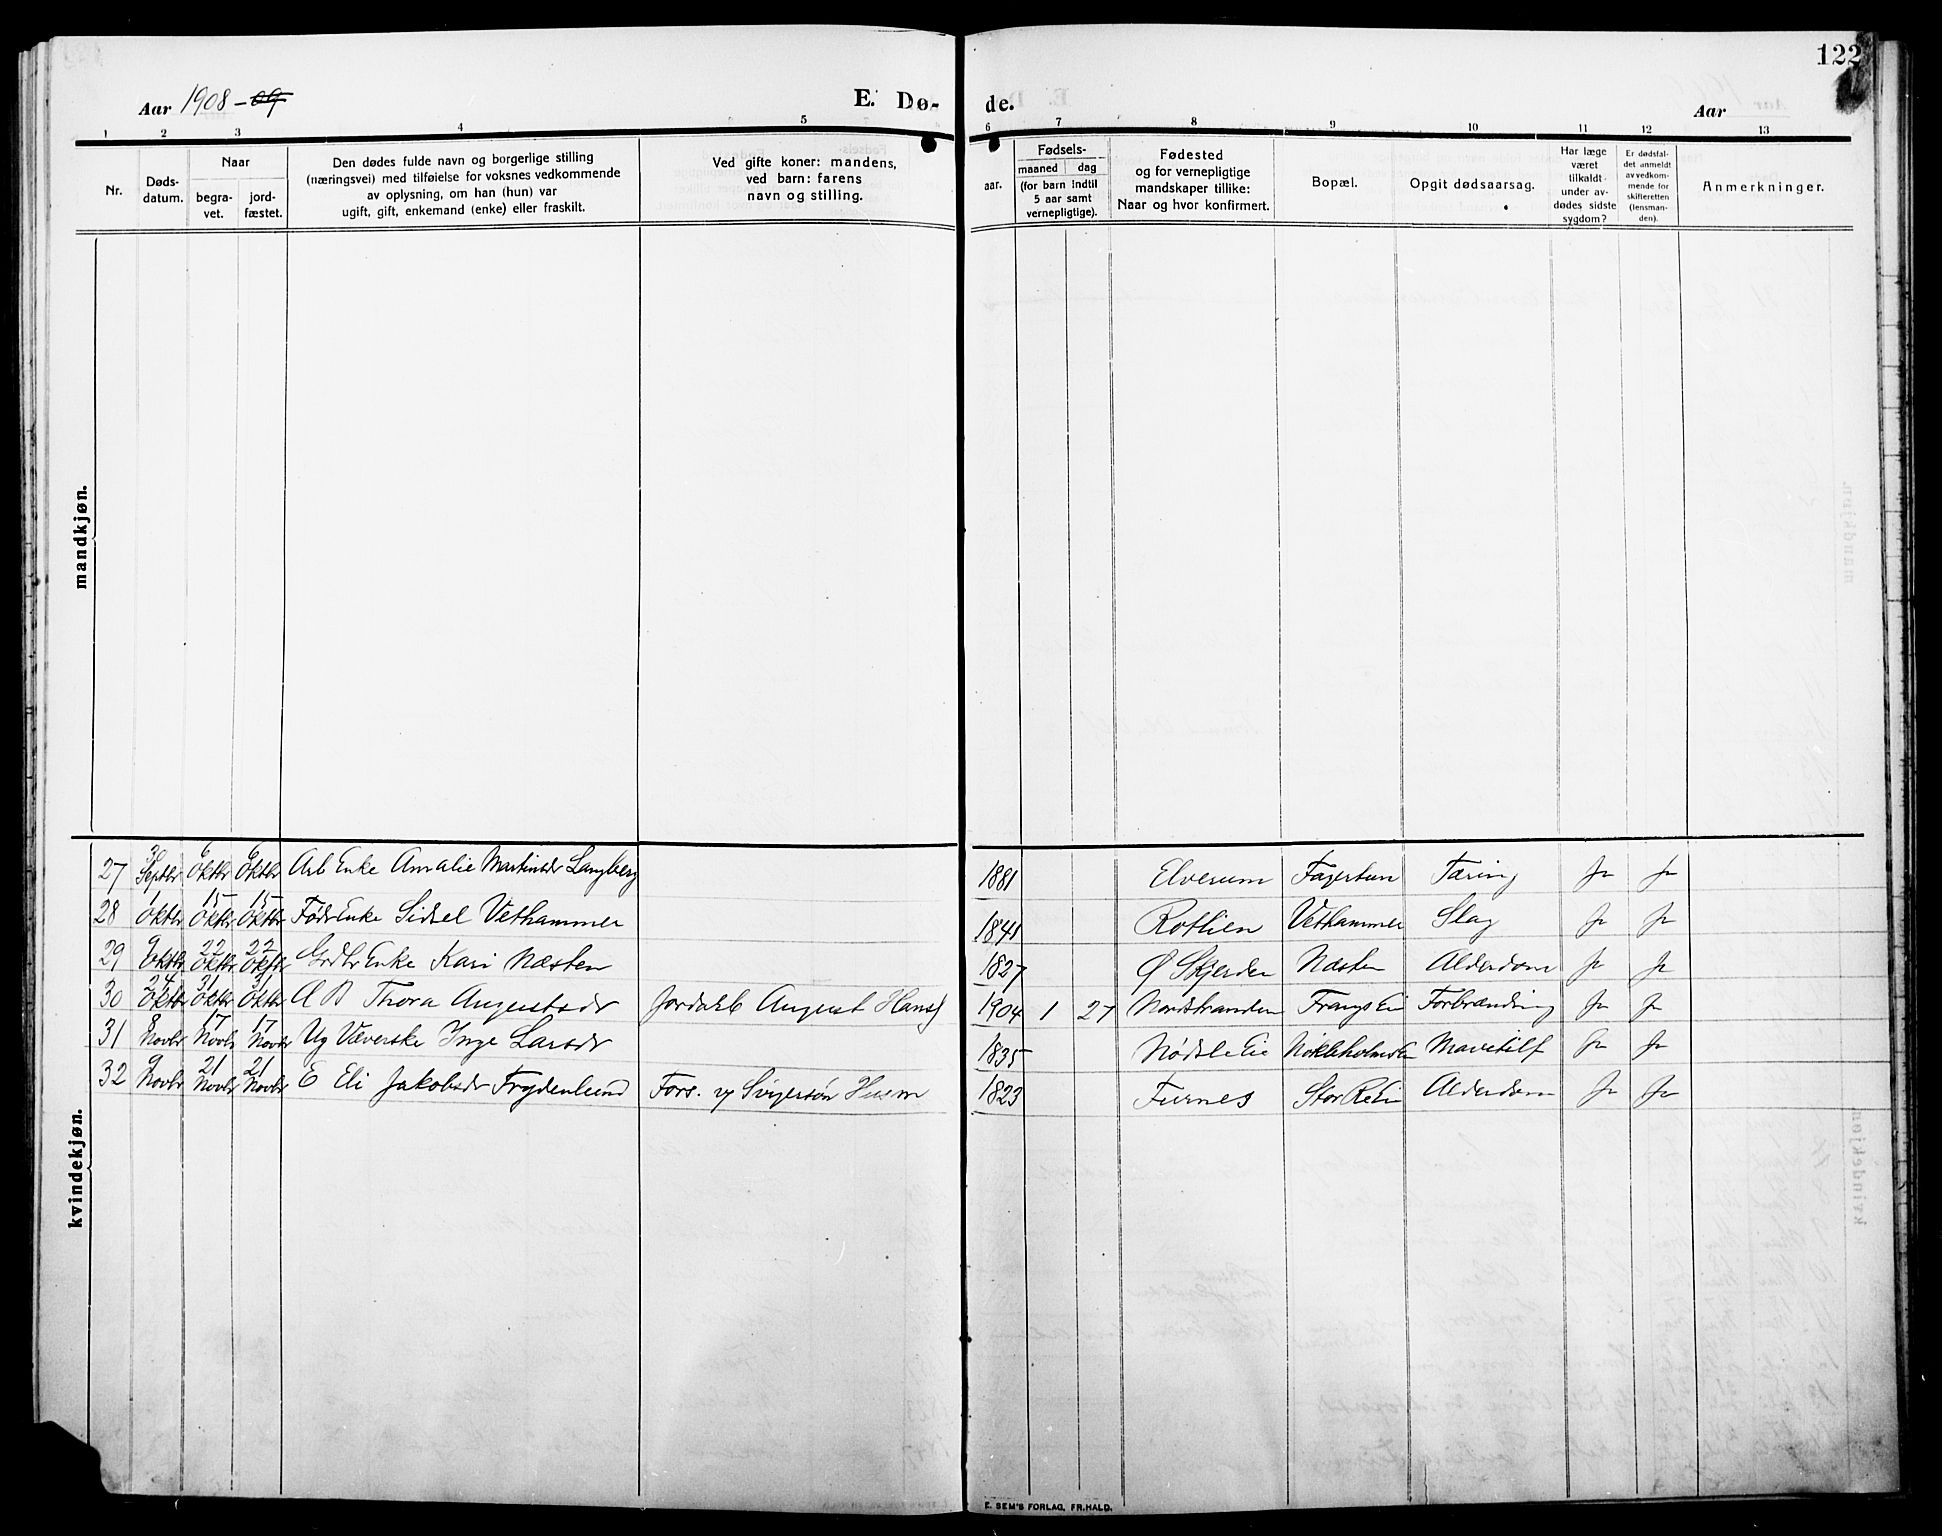 122
Aar 1908 - 09
E. Dø-
de.
Aar
1 2 3 4 5 6 7 8 9 10 11 12 13
Nr.
Døds-
datum.
Naar
begra-
vet.
jord-
fæstet.
Den dødes fulde navn og borgerlige stilling
(næringsvei) med tilføielse for voksnes vedkommende
av oplysning, om han (hun) var
ugift, gift, enkemand (enke) eller fraskilt.
Ved gifte koner: mandens,
ved barn: farens
navn og stilling.
aar.
Fødsels-
maaned dag
(for barn indtil
5 aar samt
vernepligtige).
Fødested
og for vernepligtige
mandskaper tillike:
Naar og hvor konfirmert.
Bopæl.
Opgit dødsaarsag.
Har læge
været
tilkaldt
under av-
dødes sidste
sygdom?
Er dødsfal-
det anmeldt
av vedkom-
mende for
skifteretten
(lensman-
den).
Anmerkninger.
mandkjøn.
kvindekjøn.
27 Septbr 6 Oktbr 6 Oktbr Arb Enke Amalie Martinsdr Langberg 1881 Elverum Fagertun Tæring Ja Ja
28 1 Oktbr 15 Oktbr 15 Oktbr Enke Sidsel Vethammer 1841 Rotlien Vethammer Slag Ja Ja
29 9 Oktbr 22 Oktbr 22 Oktbr Grdbr Enke Kari Næsten 1827 Ø Skjerden Næsten Alderdom Ja Ja
30 24 Oktbr 31 Oktbr 31 Oktbr A B Thora Augustsdr Jordarb August Hans 1904 1 27 Nordstranden Forbrænding Ja Ja
31 8 Novbr 17 Novbr 17 Novbr Ug Væverske Inge Larsdr 1835 Ja Ja
32 9 Novbr 21 Novbr 21 Novbr E Eli Jakobsdr Frydenlund Fors. v/ Svigersøn Husm 1823 Furnes Alderdom Ja Ja
E. SEM'S FORLAG, FR.HALD.